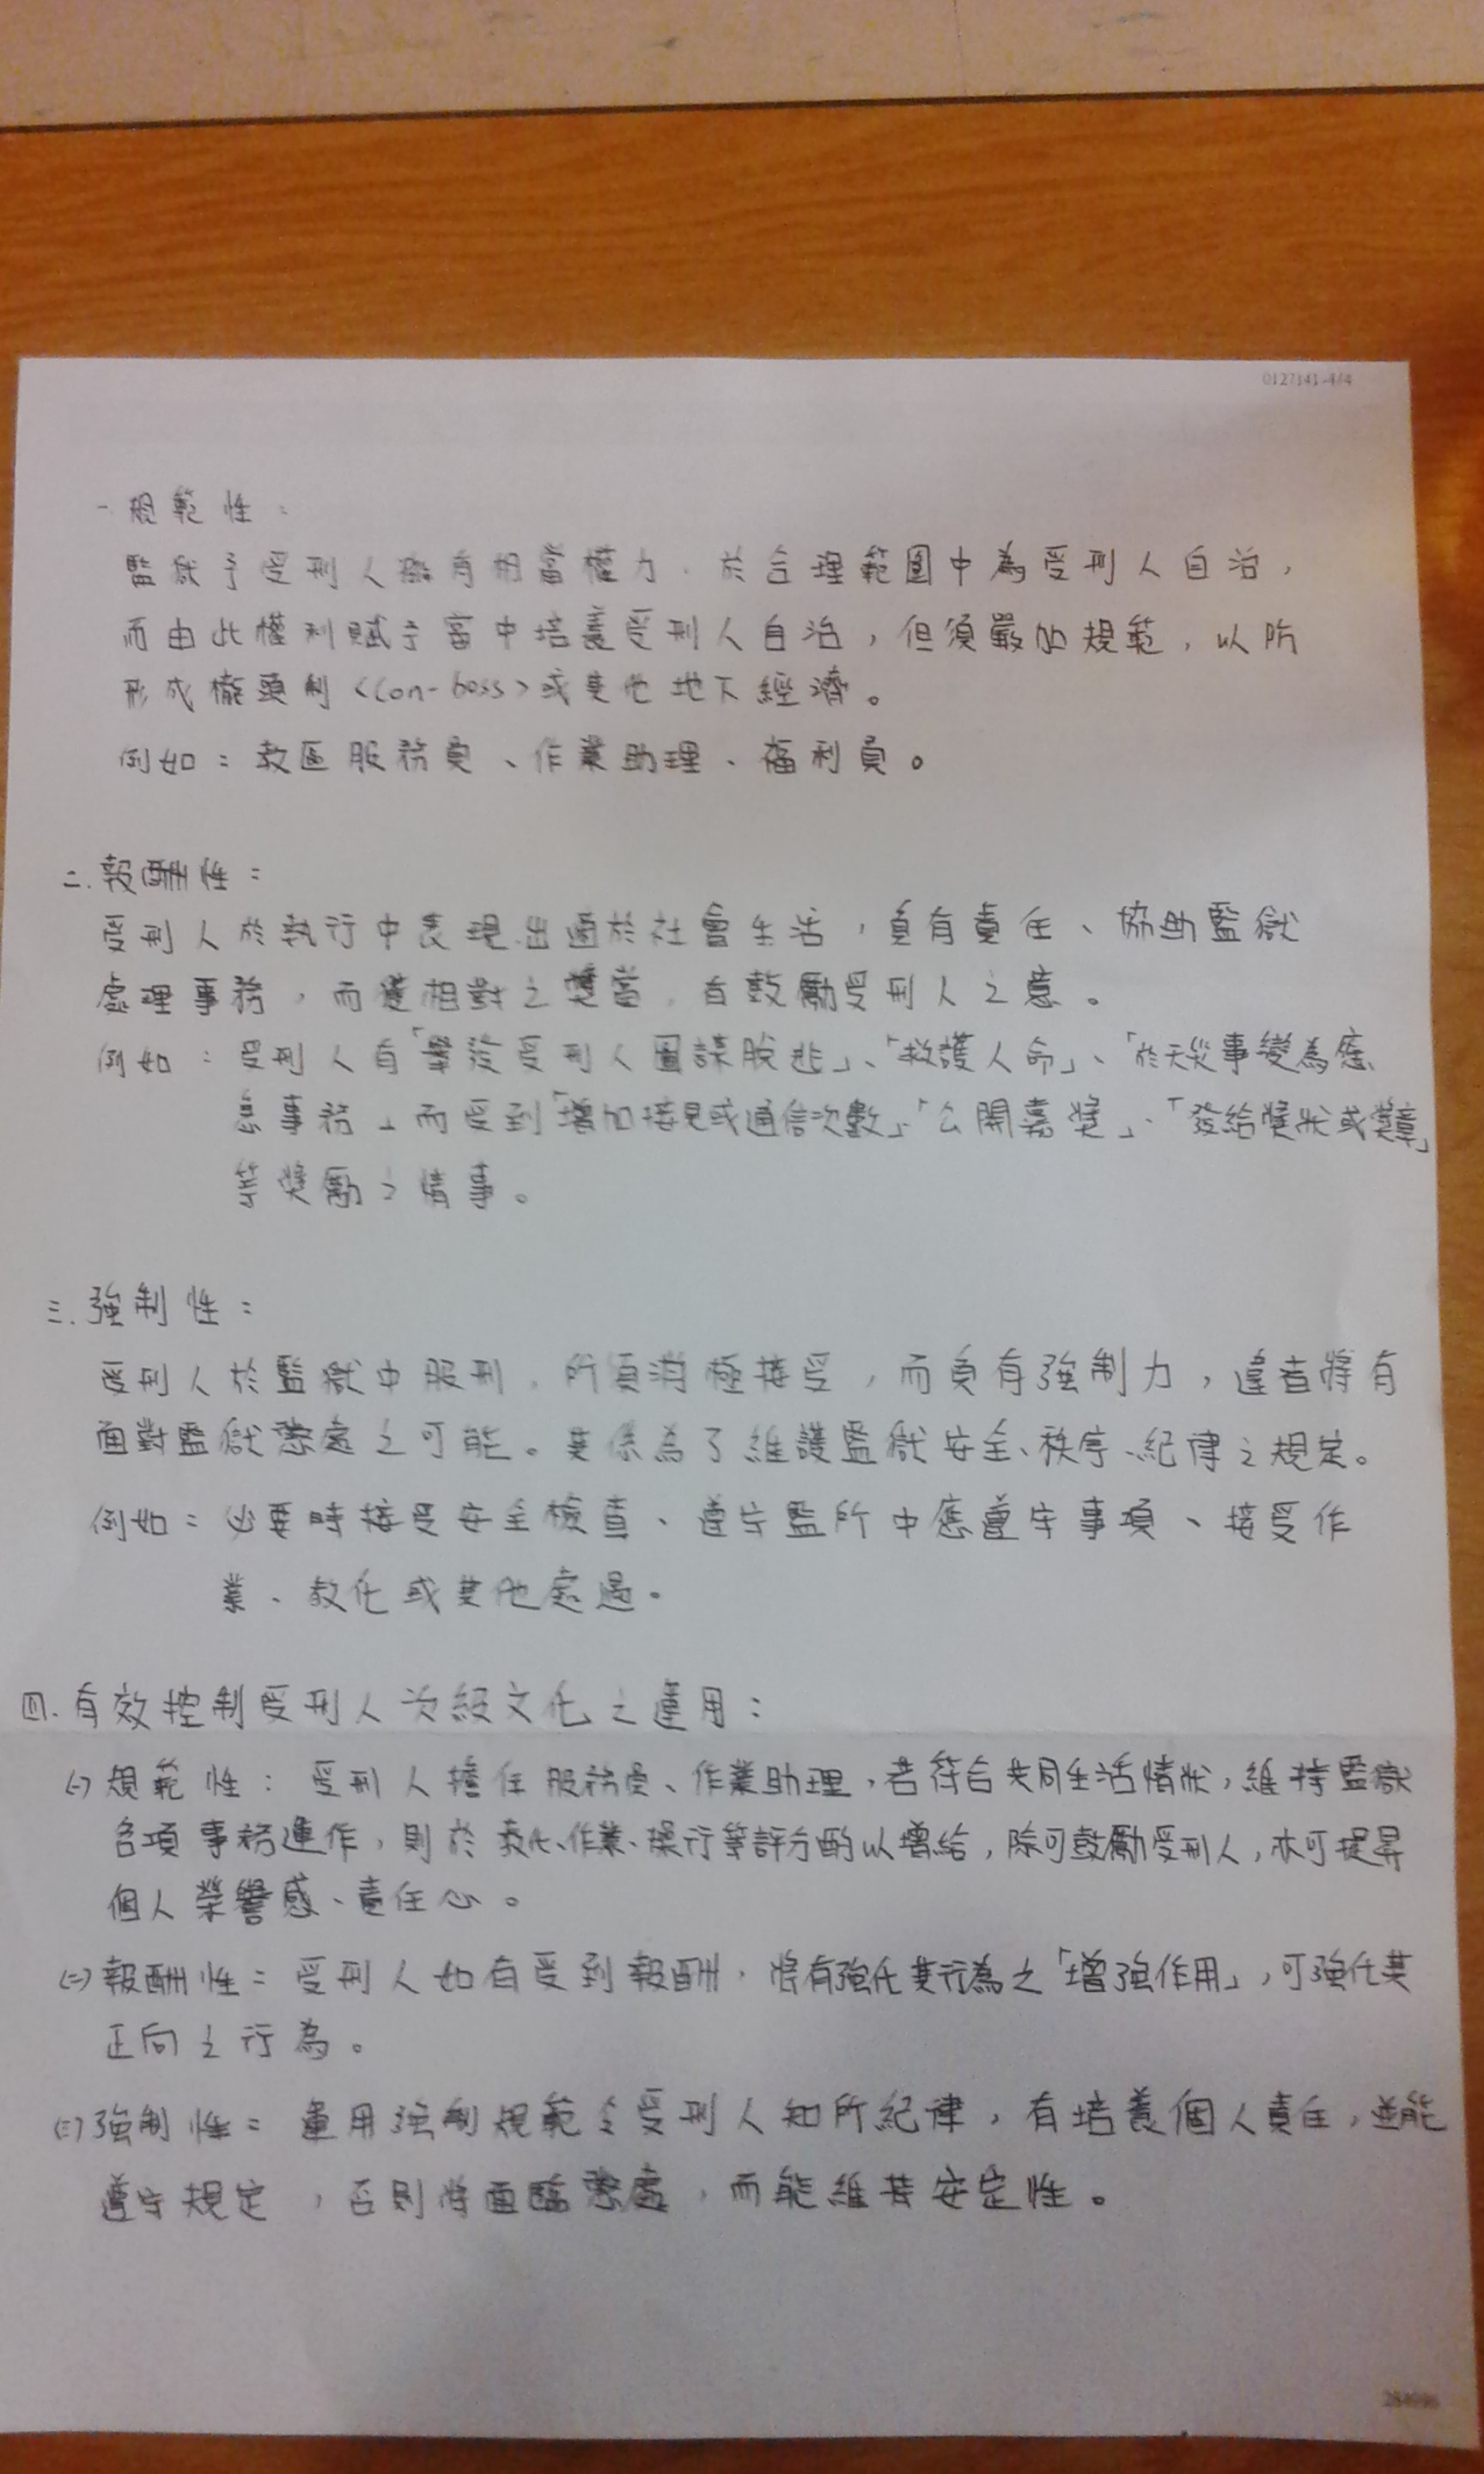 0127141-4/4
一.規範性：
監獄予受刑人擁有相當權力，於合理範圍中為受刑人自治，
而由此權利賦予當中培養受刑人自治，但須嚴加規範，以防
形成龍頭制<con-boss>或其他地下經濟。
例如：教區服務員、作業助理、福利員。
二.報酬性：
受刑人於執行中表現出適於社會生活，負有責任、協助監獄
處理事務，而獲相對之獎賞，有鼓勵受刑人之意。
例如：受刑人有「舉發受刑人圖謀脫逃」、「救護人命」、「於天災事變為應
急事務」而受到「增加接見或通信次數」、「公開嘉獎」、「發給獎狀或獎章」
等獎勵之情事。
三.強制性：
受刑人於監獄中服刑，所須消極接受，而負有強制力，違者將有
面對監獄懲處之可能。其係為了維護監獄安全、秩序、紀律之規定。
例如：必要時接受安全檢查、遵守監所中應遵守事項、接受作
業、教化或其他處遇。
四.有效控制受刑人次級文化之運用：
(一)規範性：受刑人擔任服務員、作業助理，若符合共同生活情狀，維持監獄
各項事務運作，則於教化、作業、操行等評分酌以增給，除可鼓勵受刑人，亦可提昇
個人榮譽感、責任心。
(二)報酬性：受刑人如有受到報酬，將有強化其行為之「增強作用」，可強化其
正向之行為。
(三)強制性：運用強制規範令受刑人知所紀律，有培養個人責任，並能
遵守規定，否則將面臨懲處，而能維持安定性。